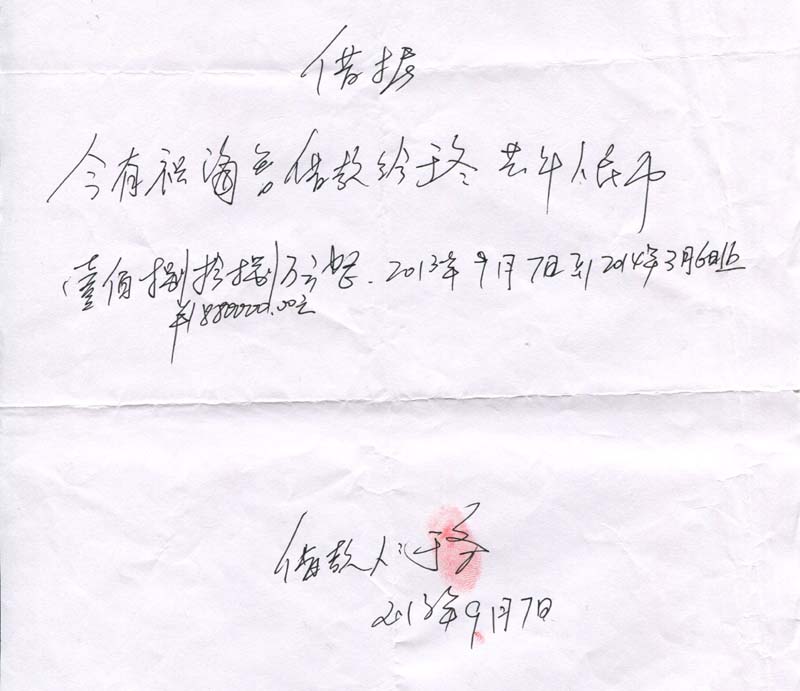 借据
今有祝海勇借款给于冬 共计人民币
壹佰捌拾捌万元整.2013年9月7日到2014年3月6日止
¥1880000.00元
借款人:于冬
2013年9月7日